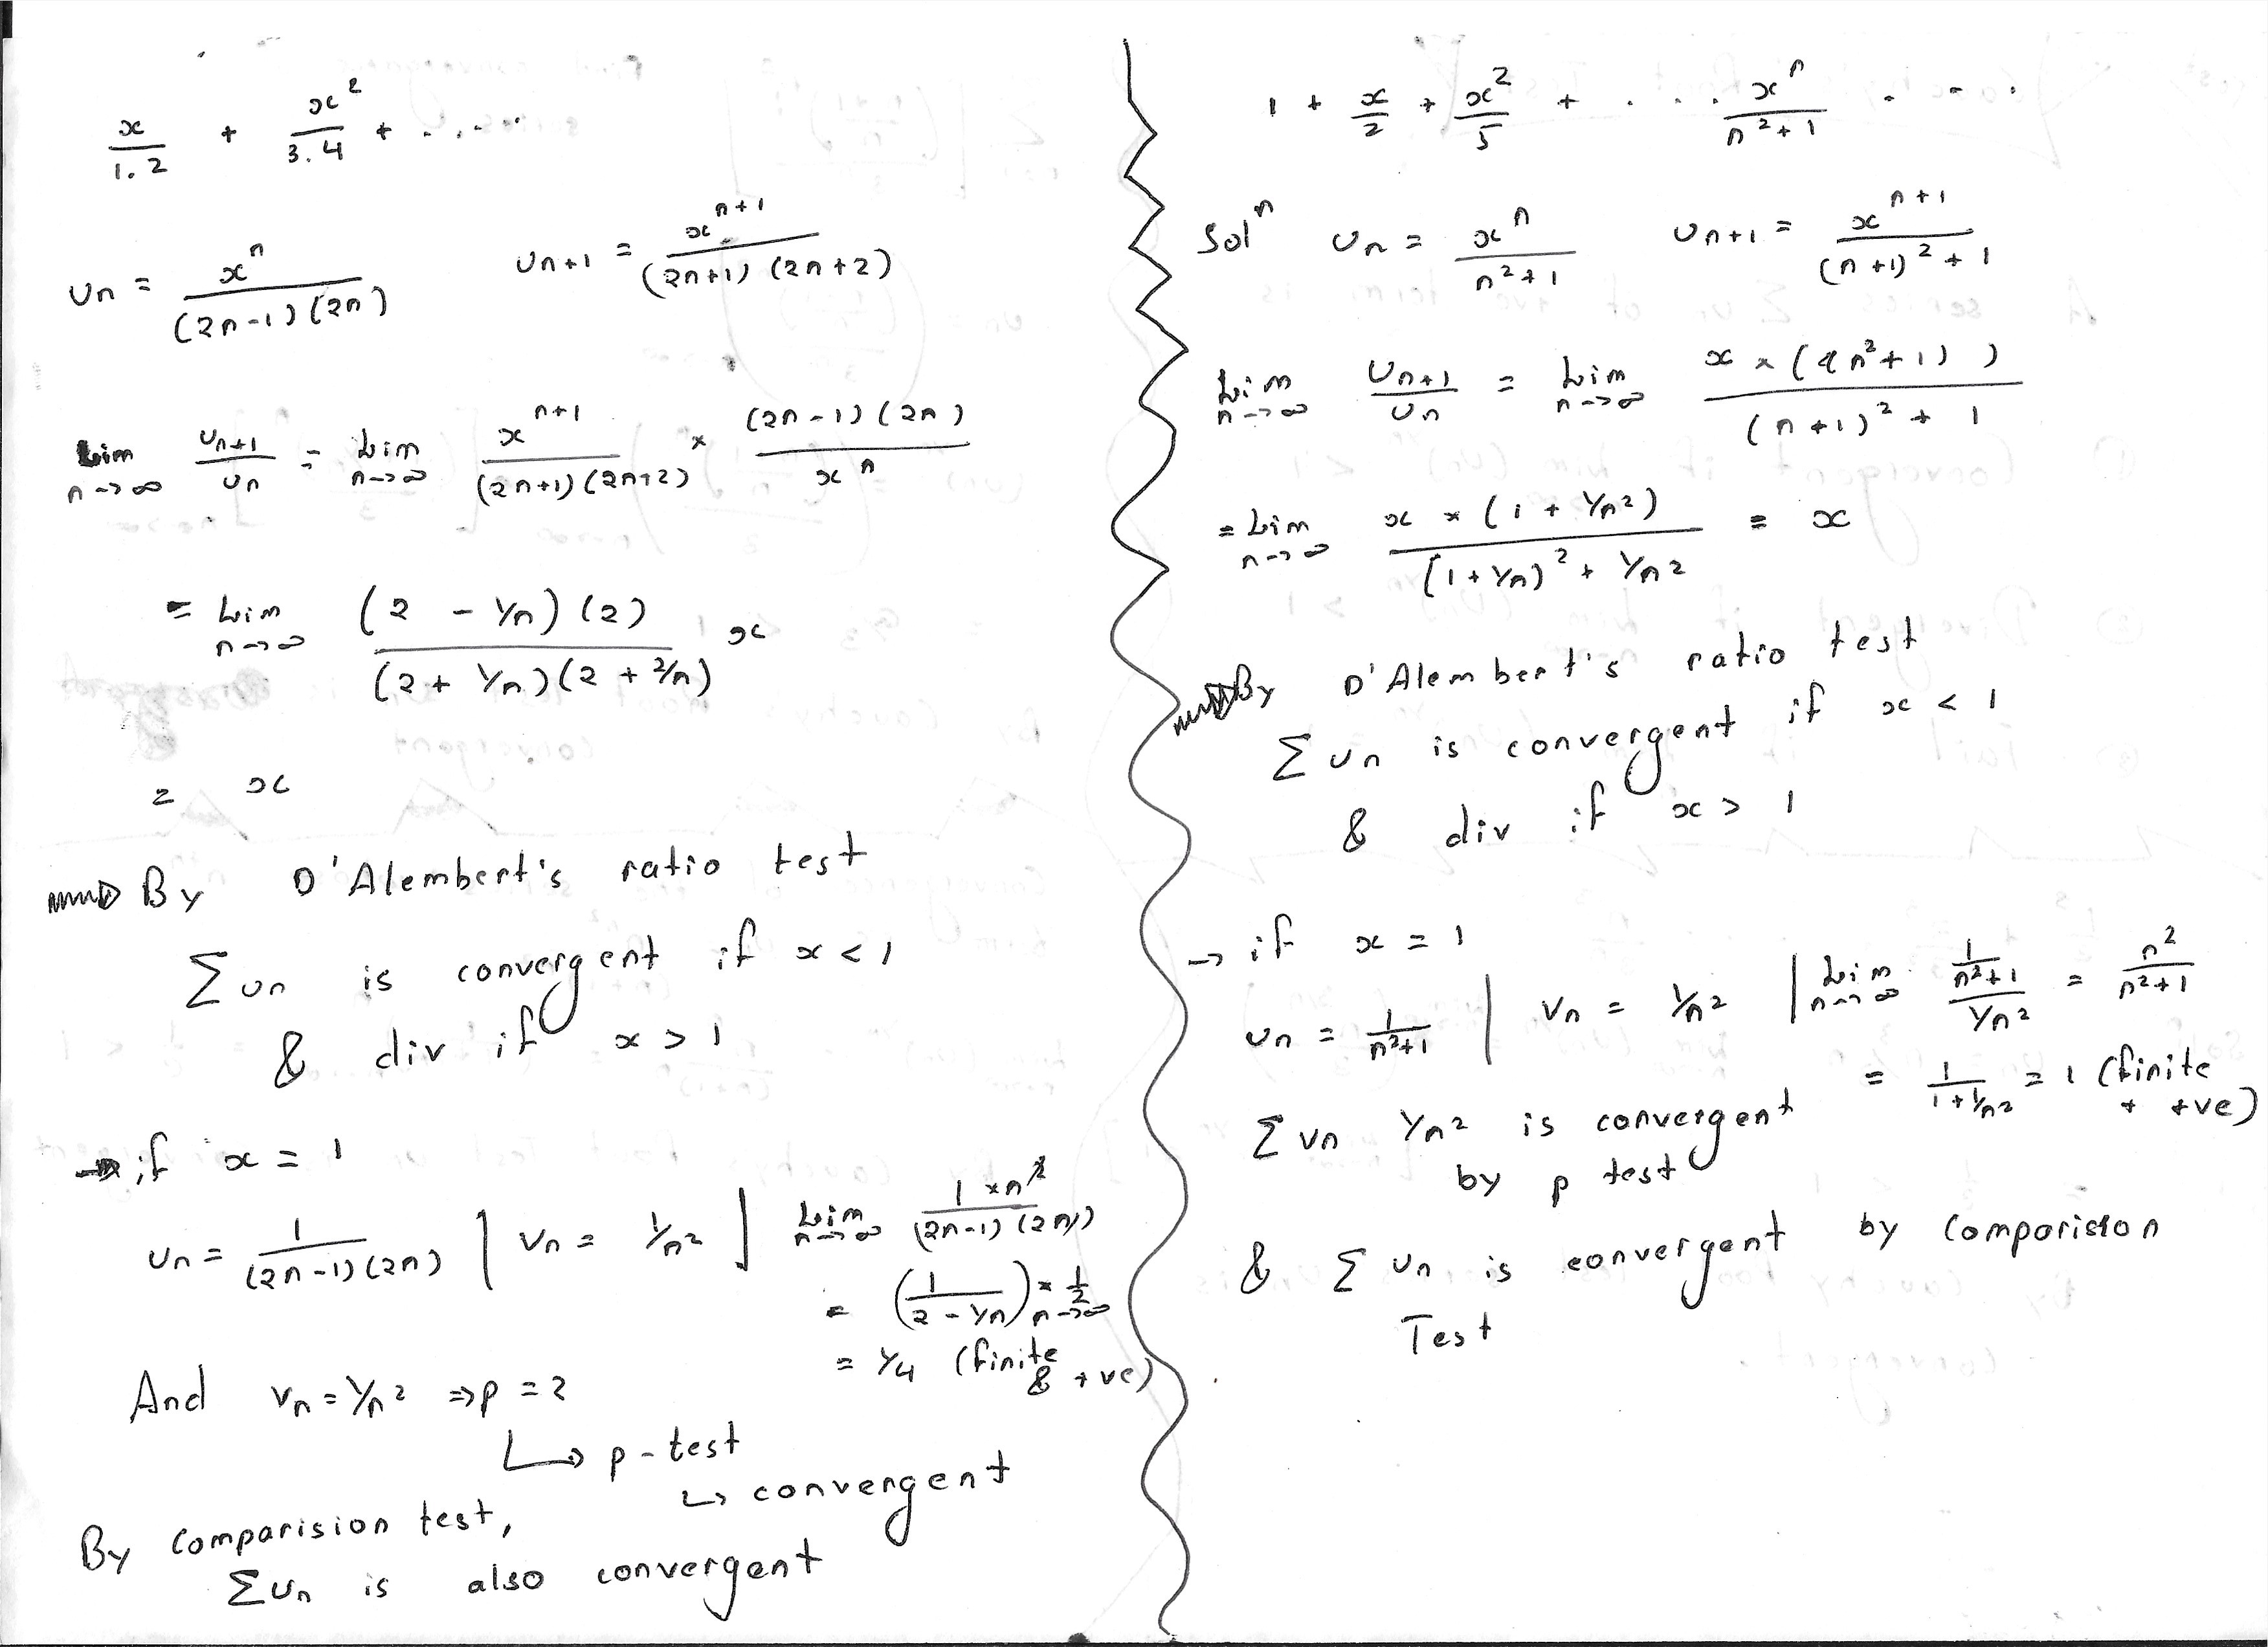 x/1.2 + x²/3.4 + . . . . .
Un = xⁿ/(2n-1)(2n)    Un+1 = xⁿ⁺¹/(2n+1)(2n+2)
Lim n→∞ Un+1/Un = Lim n→∞ xⁿ⁺¹/(2n+1)(2n+2) × (2n-1)(2n)/xⁿ
= Lim n→∞ (2 - 1/n)(2)/(2 + 1/n)(2 + 2/n) x
= x
By D'Alembert's ratio test
Σun is convergent if x < 1
& div if x > 1
→ if x = 1
Un = 1/(2n-1)(2n) | Vn = 1/n² | Lim n→∞ 1×n²/(2n-1)(2n)
= (1/(2 - 1/n)) × 1/2 n→∞
= 1/4 (finite & +ve)
And Vn = 1/n² ⇒ p = 2
↳ p-test
↳ convergent
By comparision test,
Σun is also convergent
1 + x/2 + x²/5 + . . . . xⁿ/n²+1 . . . .
Solⁿ Un = xⁿ/n²+1    Un+1 = xⁿ⁺¹/(n+1)²+1
Lim n→∞ Un+1/Un = Lim n→∞ x × (n²+1))/(n+1)²+1
= Lim n→∞ x × (1 + 1/n²)/(1+1/n)² + 1/n² = x
By D'Alembert's ratio test
Σun is convergent if x < 1
& div if x > 1
→ if x = 1
un = 1/n²+1 | Vn = 1/n² | Lim n→∞ (1/n²+1)/(1/n²) = n²/n²+1
= 1/1+1/n² = 1 (finite + +ve)
Σvn 1/n² is convergent
by p test
& Σun is convergent by comparision
Test